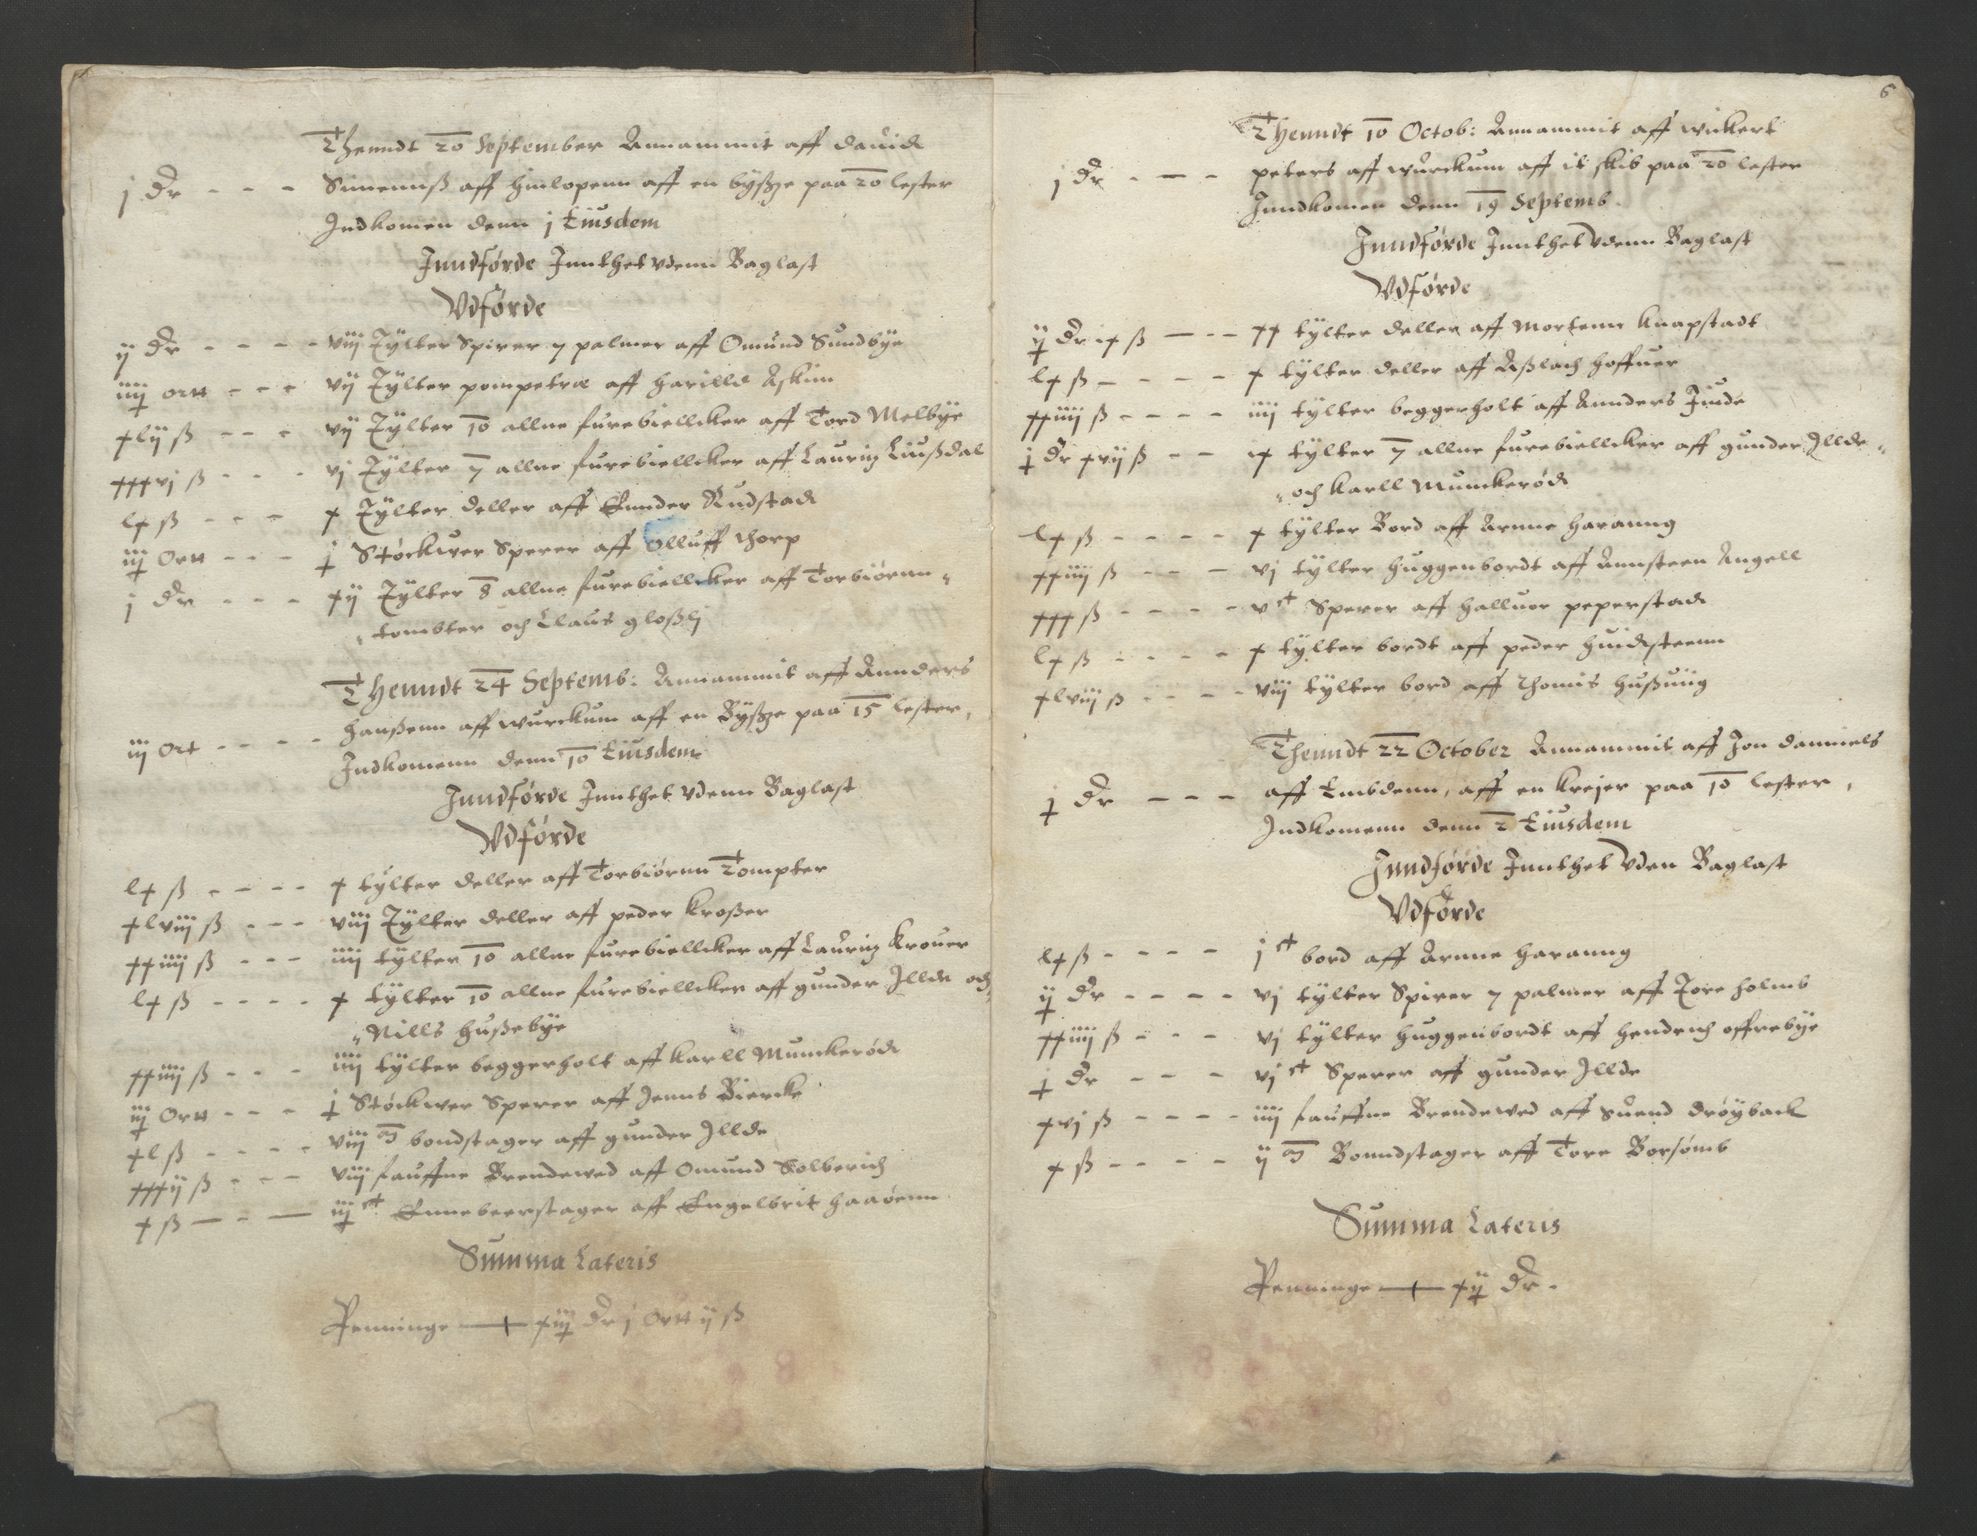 Thenndt 20 September Annammit aff Dauid
j dr - - - Simennß aff Hinlopenn aff en Byßze paa 20 lester
Indkomen denn j Eiusdem
Inndförde Inthet vdenn Baglast
Vdförde
ij dr - - - - viij Tylter Spirer 7 palmer aff Omund Sundbye
iiij ortt - - - vij Tylter pompetræ aff Harilld Askim
xlij ß - - - vij Tylter 10 allne furebiellcker aff Tord Melbye
xxxvj ß - - - vj Tylter 7 allne furebiellcker aff Lauritz Liußdal
lx ß - - - x Tylter deller aff Gunder Rudstad
iij ortt - - - j Stöckwer Sperer aff Olluff Thorp
j dr - - - xij Tylter 8 allne furebiellcker aff Torbiörnn
tombter och Claus gloßlj
Thenndt 24 Septemb: Annammit aff Annders
iij ort - - - - Hanßenn aff Wurckum aff en Byßze paa 15 lester,
Indkomenn denn 10 Eiusdem
Inndförde Inthet vdenn Baglast
Vdförde
lx ß - - - - x tylter deller aff Torbiörnn Tompter
xlviij ß - - - viij Tylter deller aff peder Kroßer
xxiiij ß - - - iiij tylter 10 allne furebiellcker aff Lauritz Krouer
lx ß - - - - x tylter 10 allne furebiellcker aff gunder Illde och
Nills Hußebye
xxiiij ß - - - iiij tylter beggerholt aff Karll Munckeröd
iij ortt - - - j Stöckwer Sperer aff Jenns Biercke
xl ß - - - - viij m bondstager aff gunder Illde
xxxij ß - - - viij fauffne Brendewed aff Omund Solberich
x ß - - - iij c Ennebeerstager aff Engelbrit Haaöenn
Summa Lateris
Penninge xiij dr j ortt ij ß
6
Thenndt 10 Octob: Annammit aff Wickert
j dr - - - peters aff Wurckum aff it skib paa 20 lester
Inndkomen denn 19 Septemb.
Inndförde Inthet vdenn Baglast
Vdförde
ij dr ix ß - - - xx tylter deller aff Mortenn Knapstadt
lx ß - - - - x tylter deller aff Aßlach Hoffuer
xxiiij ß - - - - iiij tylter beggerholt aff Annders Juide
j dr xvij ß - - ix tylter 7 allne furebiellcker aff gunder Illde
och Karll Munckeröd
lx ß - - - - x tylter Bord aff Arnne Haranng
xxiiij ß - - - vj tylter Huggenbordt aff Annsteen Angell
xxx ß - - - - v c Sperer aff Halluor peperstad
lx ß - - - - x tylter bordt aff peder Huidsteenn
xlviij ß - - - - viij tylter bord aff Thomis Hußuiig
Thenndt 22 October Annammit aff Jon Danniels
j dr - - - aff Embdenn, aff en Krejer paa 10 lester,
Indkomenn denn 2 Eiusdem
Inndförde Inthet vden Baglast
Vdförde
lx ß - - - - j c bord aff Arnne Haranng
ij dr - - - - vj tylter Spirer 7 palmer aff Tore Holmb
xxiiij ß - - - vj tylter Huggenbordt aff Hendrich Offrebye
j dr - - - vj c Sperer aff gunder Illde
xvj ß - - - - iiij fauffne Brendewed aff Suend Dröyback
x ß - - - - ij m Bonndstager aff Tore Borsömb
Summa Lateris
Penninge xij dr.